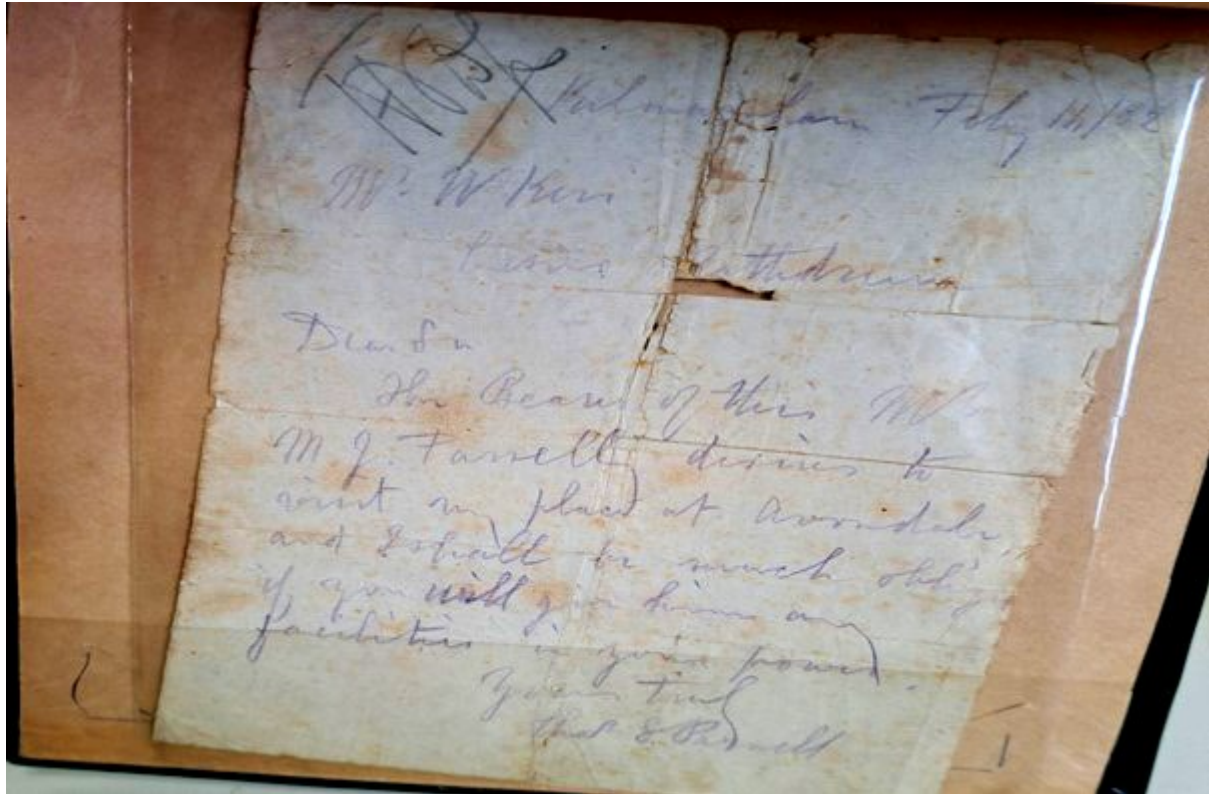 Kilmainham Feby 14/82
Mr W Kerr
Rathdrum
Dear Sir
The Bearer of this Mr
M J. Farrell desires to
visit my place at Avondale,
and I shall be much obl'g
if you will give him any
facilities in your power.
Yours truly
Chas S. Parnell